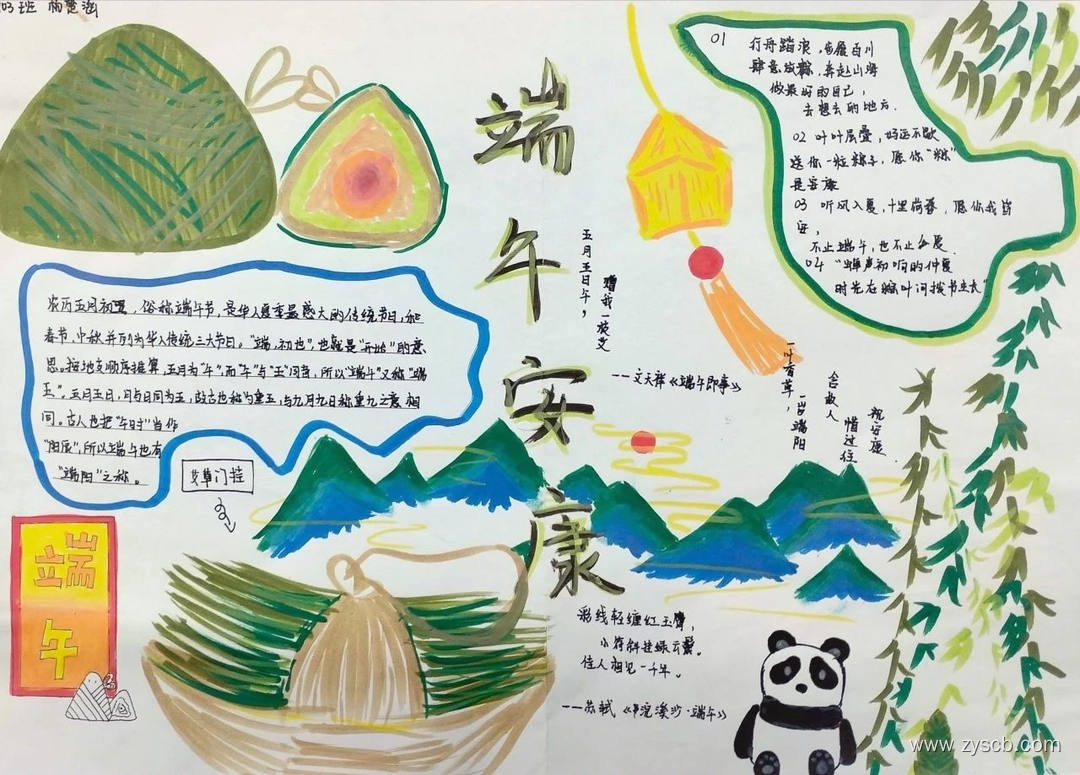 03班
端午安康
农历五月初五，俗称端午节，是华人夏季最盛大的传统节日，和
春节、中秋并列为华人传统三大节日。"端，初也"，也就是"开始"的意
思。按地支顺序推算，五月为"午"，而"午"与"五"同音，所以"端午"又称"端
五"。五月五日，月与日同为五，故古也称为重五，与九月九日称重九之意相
同。古人也把"午时"当作
"阳辰"，所以端午也有
"端阳"之称。
艾草门挂
端午
五月五日午，
赠我一枝艾
——文天祥《端午即事》
01 行舟踏浪，
肆意成粽，奔赴山海
做最好的自己，
去想去的地方．
02 叶叶层叠，好运不歇
送你一粒粽子，愿你"粽"
是安康
03 听风入夏，十里荷香，愿你我皆
安，
不止端午，也不止仲夏
04 "蝉声初响的仲夏
时光在粽叶间挨书生长"
一叶青草，
一岁端阳
合故人
惜过往
祝安康
彩线轻缠红玉臂，
小符斜挂绿云鬟。
佳人相见一千年。
——苏轼《浣溪沙·端午》
www.zyscb.com